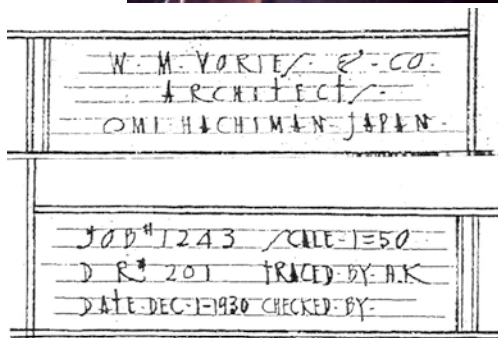 W. M. VORIES. & - CO.
ARCHITECTS.
OMI-HACHIMAN-JAPAN.
JOB #1243 SCALE-1=50
DR# 201 TRACED-BY-A.K
DATE-DEC-1-1930 CHECKED-BY-